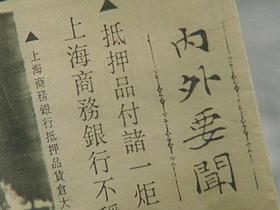 內外要聞
抵押品付諸一炬
上海商務銀行不
▲上海商務銀行抵押品貨倉大